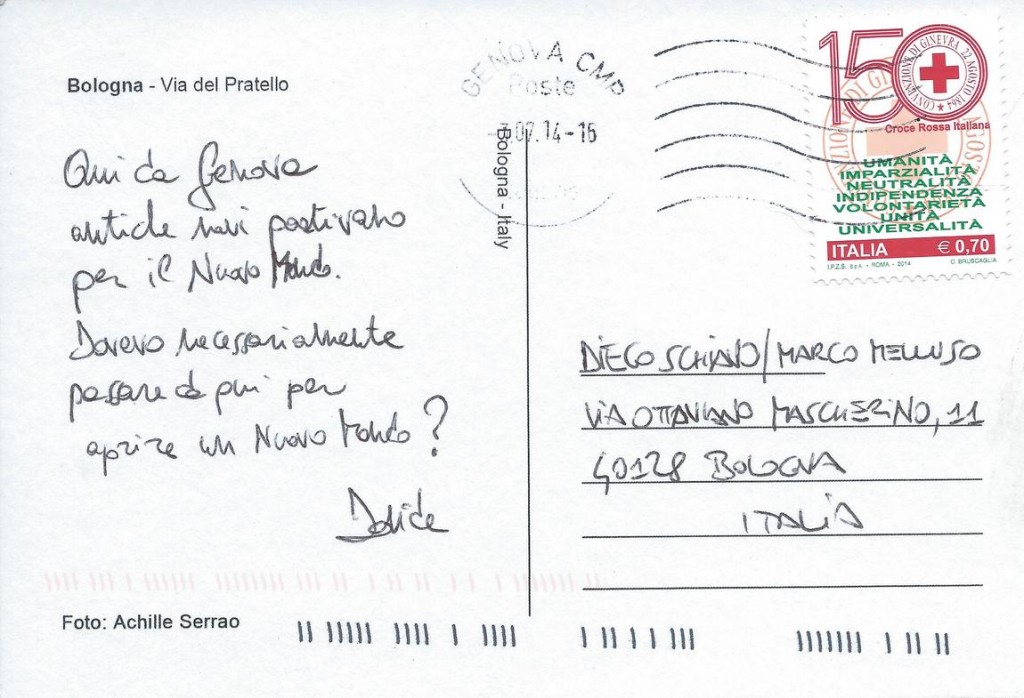 Bologna - Via del Pratello
Qui da Genova
antiche navi partivano
per il Nuovo Mondo.
Dovevo necessariamente
passare da qui per
aprire un Nuovo Mondo?
Davide
Foto: Achille Serrao
Bologna - Italy
GENOVA CMP
Poste
.07.14-16
150
CONVENZIONE DI GINEVRA 22 AGOSTO 1864
Croce Rossa Italiana
UMANITÀ
IMPARZIALITÀ
NEUTRALITÀ
INDIPENDENZA
VOLONTARIETÀ
UNITÀ
UNIVERSALITÀ
ITALIA € 0,70
I.P.Z.S. S.p.A. - ROMA - 2014 C. BRUSCAGLIA
DIEGO SCHIANO/MARCO MELLUSO
VIA OTTAVIANO MASCHERINO, 11
40128 BOLOGNA
ITALIA